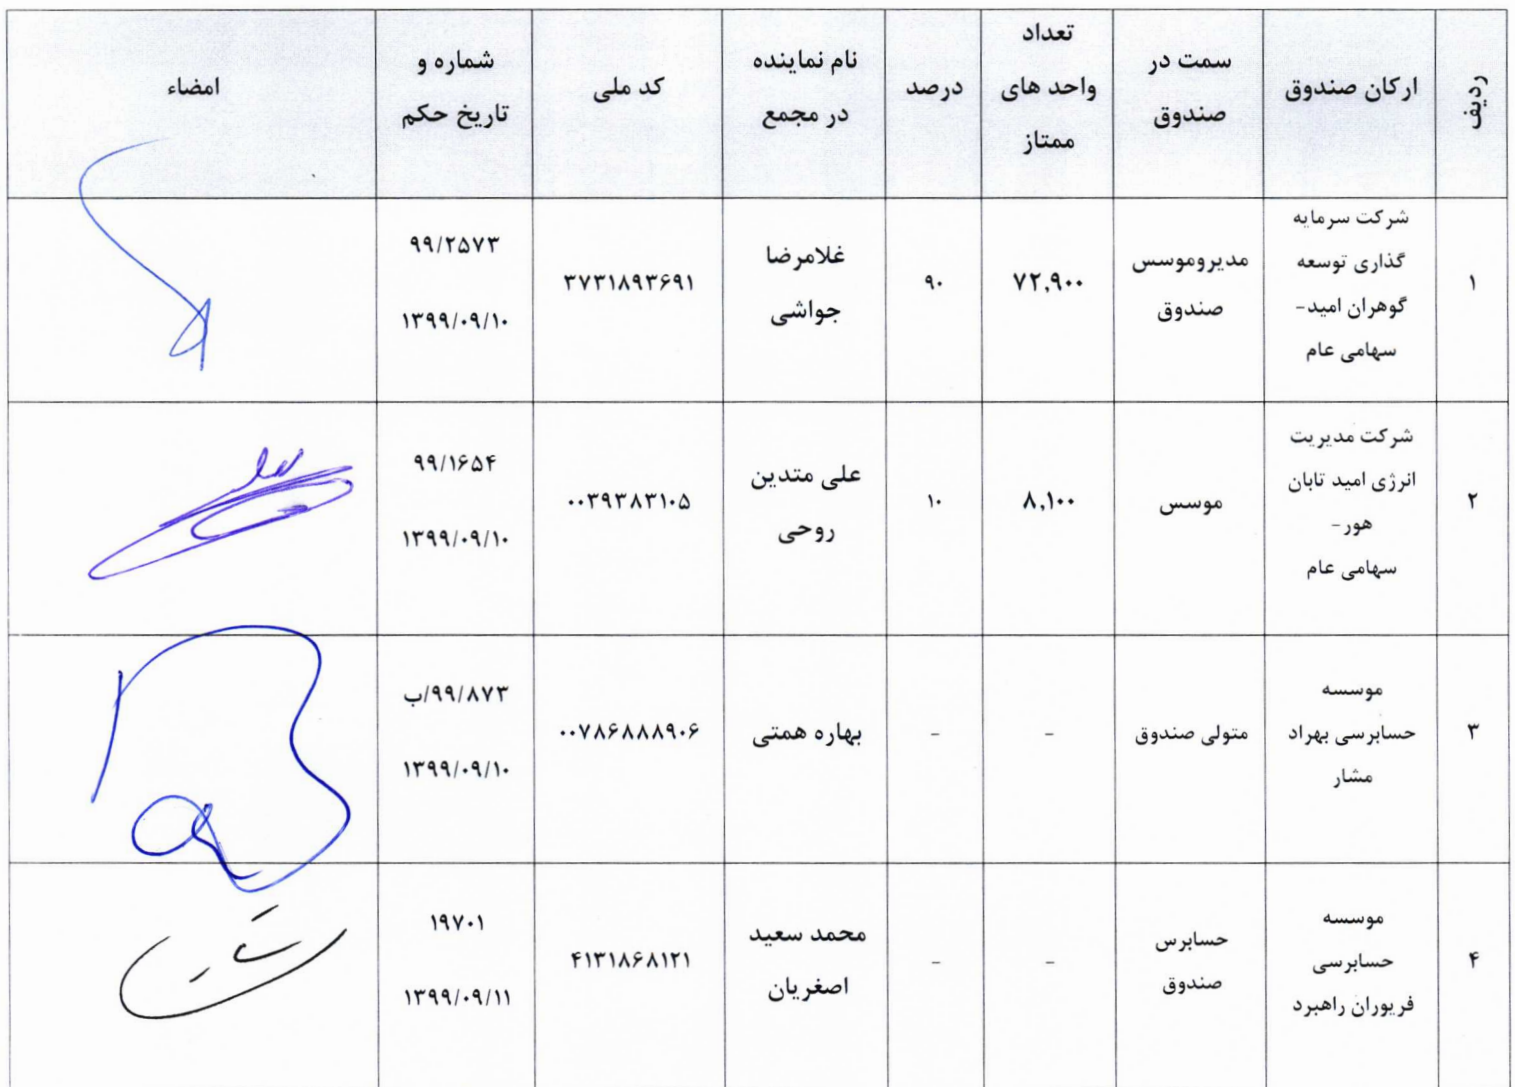 ردیف
ارکان صندوق
سمت در
صندوق
تعداد
واحد های
ممتاز
درصد
نام نماینده
در مجمع
کد ملی
شماره و
تاریخ حکم
امضاء
۱
شرکت سرمایه
گذاری توسعه
گوهران امید-
سهامی عام
مدیروموسس
صندوق
۷۲,۹۰۰
۹۰
غلامرضا
جواشی
۳۷۳۱۸۹۳۶۹۱
۹۹/۲۵۷۳
۱۳۹۹/۰۹/۱۰
۲
شرکت مدیریت
انرژی امید تابان
هور-
سهامی عام
موسس
۸,۱۰۰
۱۰
علی متدین
روحی
۰۰۳۹۳۸۳۱۰۵
۹۹/۱۶۵۴
۱۳۹۹/۰۹/۱۰
۳
موسسه
حسابرسی بهراد
مشار
متولی صندوق
-
-
بهاره همتی
۰۰۷۸۶۸۸۸۹۰۶
۹۹/۸۷۳/ب
۱۳۹۹/۰۹/۱۰
۴
موسسه
حسابرسی
فریوران راهبرد
حسابرس
صندوق
-
-
محمد سعید
اصغریان
۴۱۳۱۸۶۸۱۲۱
۱۹۷۰۱
۱۳۹۹/۰۹/۱۱